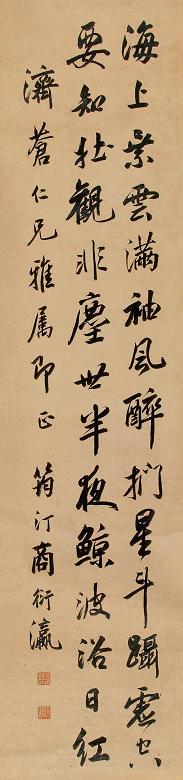 海上乘雲滿袖風醉捫星斗躡虛空
要知壯觀非塵世半夜鯨波浴日紅
濟蒼仁兄雅屬即正 筠汀商衍瀛